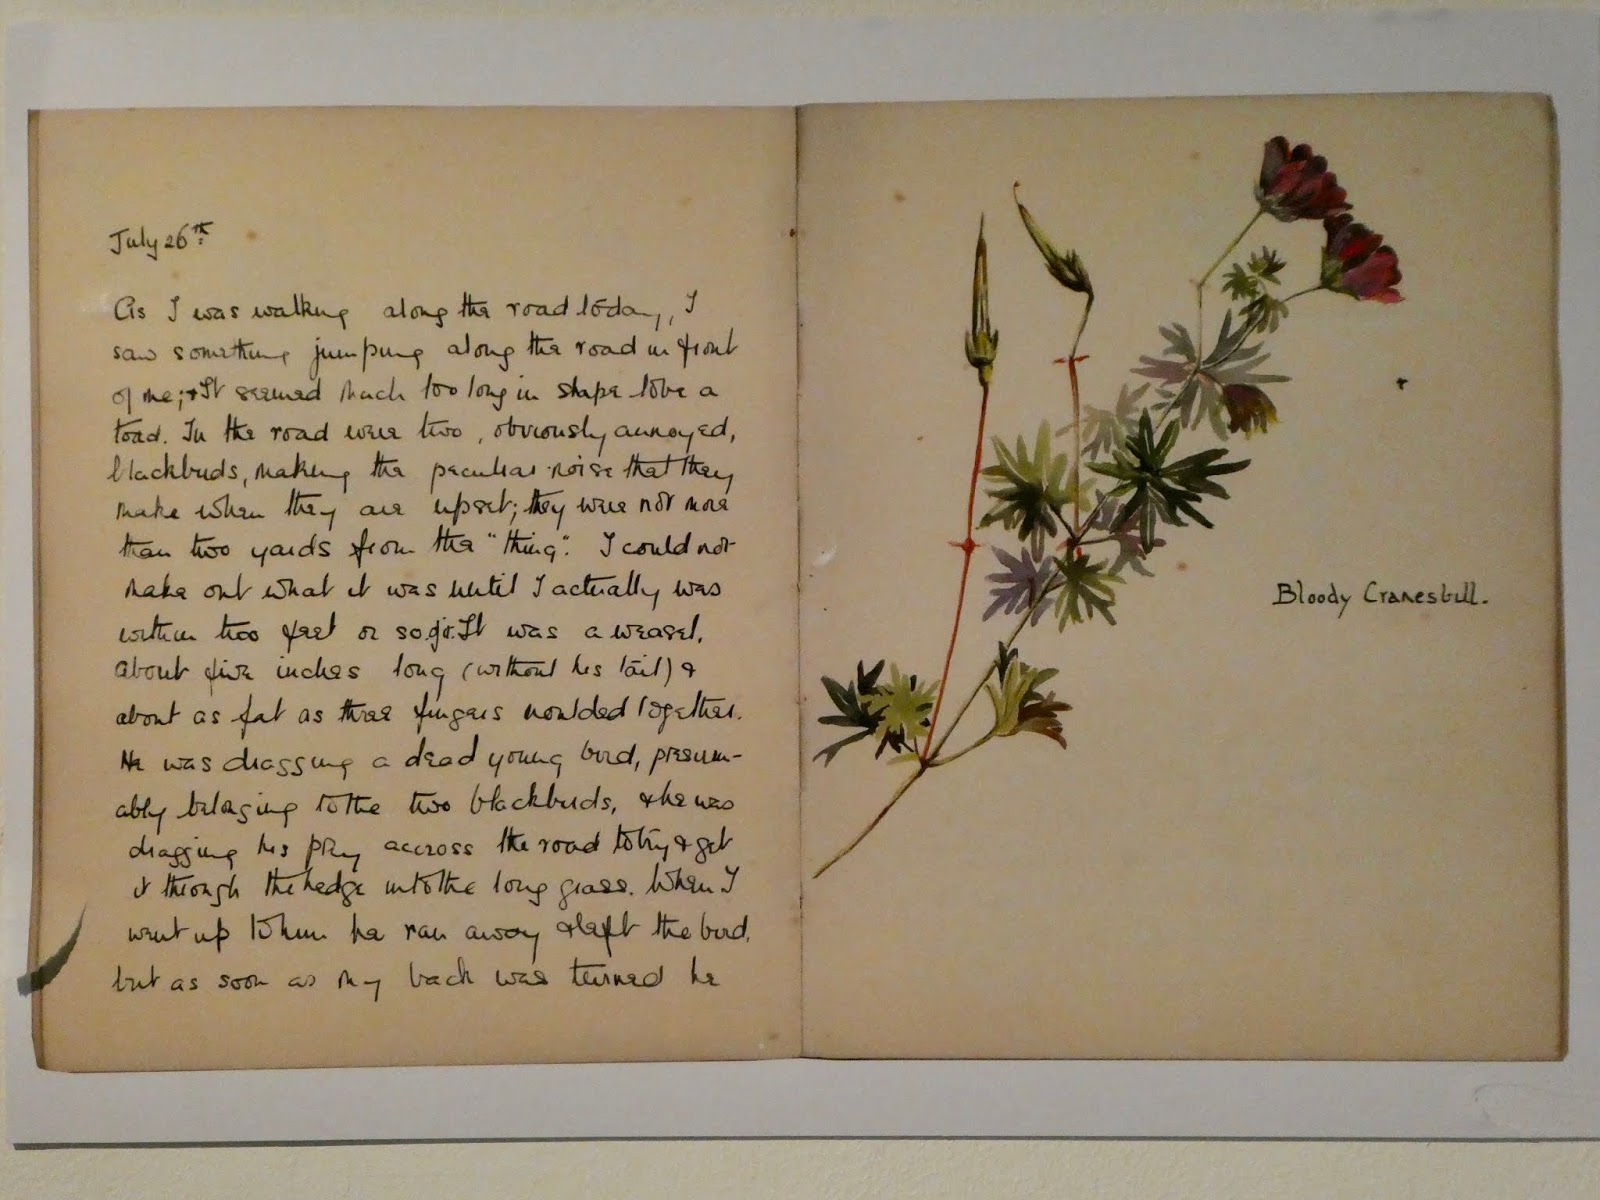 July 26th.
As I was walking along the road today, I
saw something jumping along the road in front
of me; & It seemed much too long in shape to be a
toad. In the road were two, obviously annoyed,
blackbirds, making the peculiar noise that they
make when they are upset; they were not more
than two yards from the "thing". I could not
make out what it was until I actually was
within two feet or so of it. It was a weasel,
about five inches long (without his tail) &
about as fat as three fingers moulded together.
He was dragging a dead young bird, presum-
ably belonging to the two blackbirds, & he was
dragging his prey accross the road to try & get
it through the hedge into the long grass. When I
went up to him he ran away & left the bird,
but as soon as my back was turned he
Bloody Cranesbill.